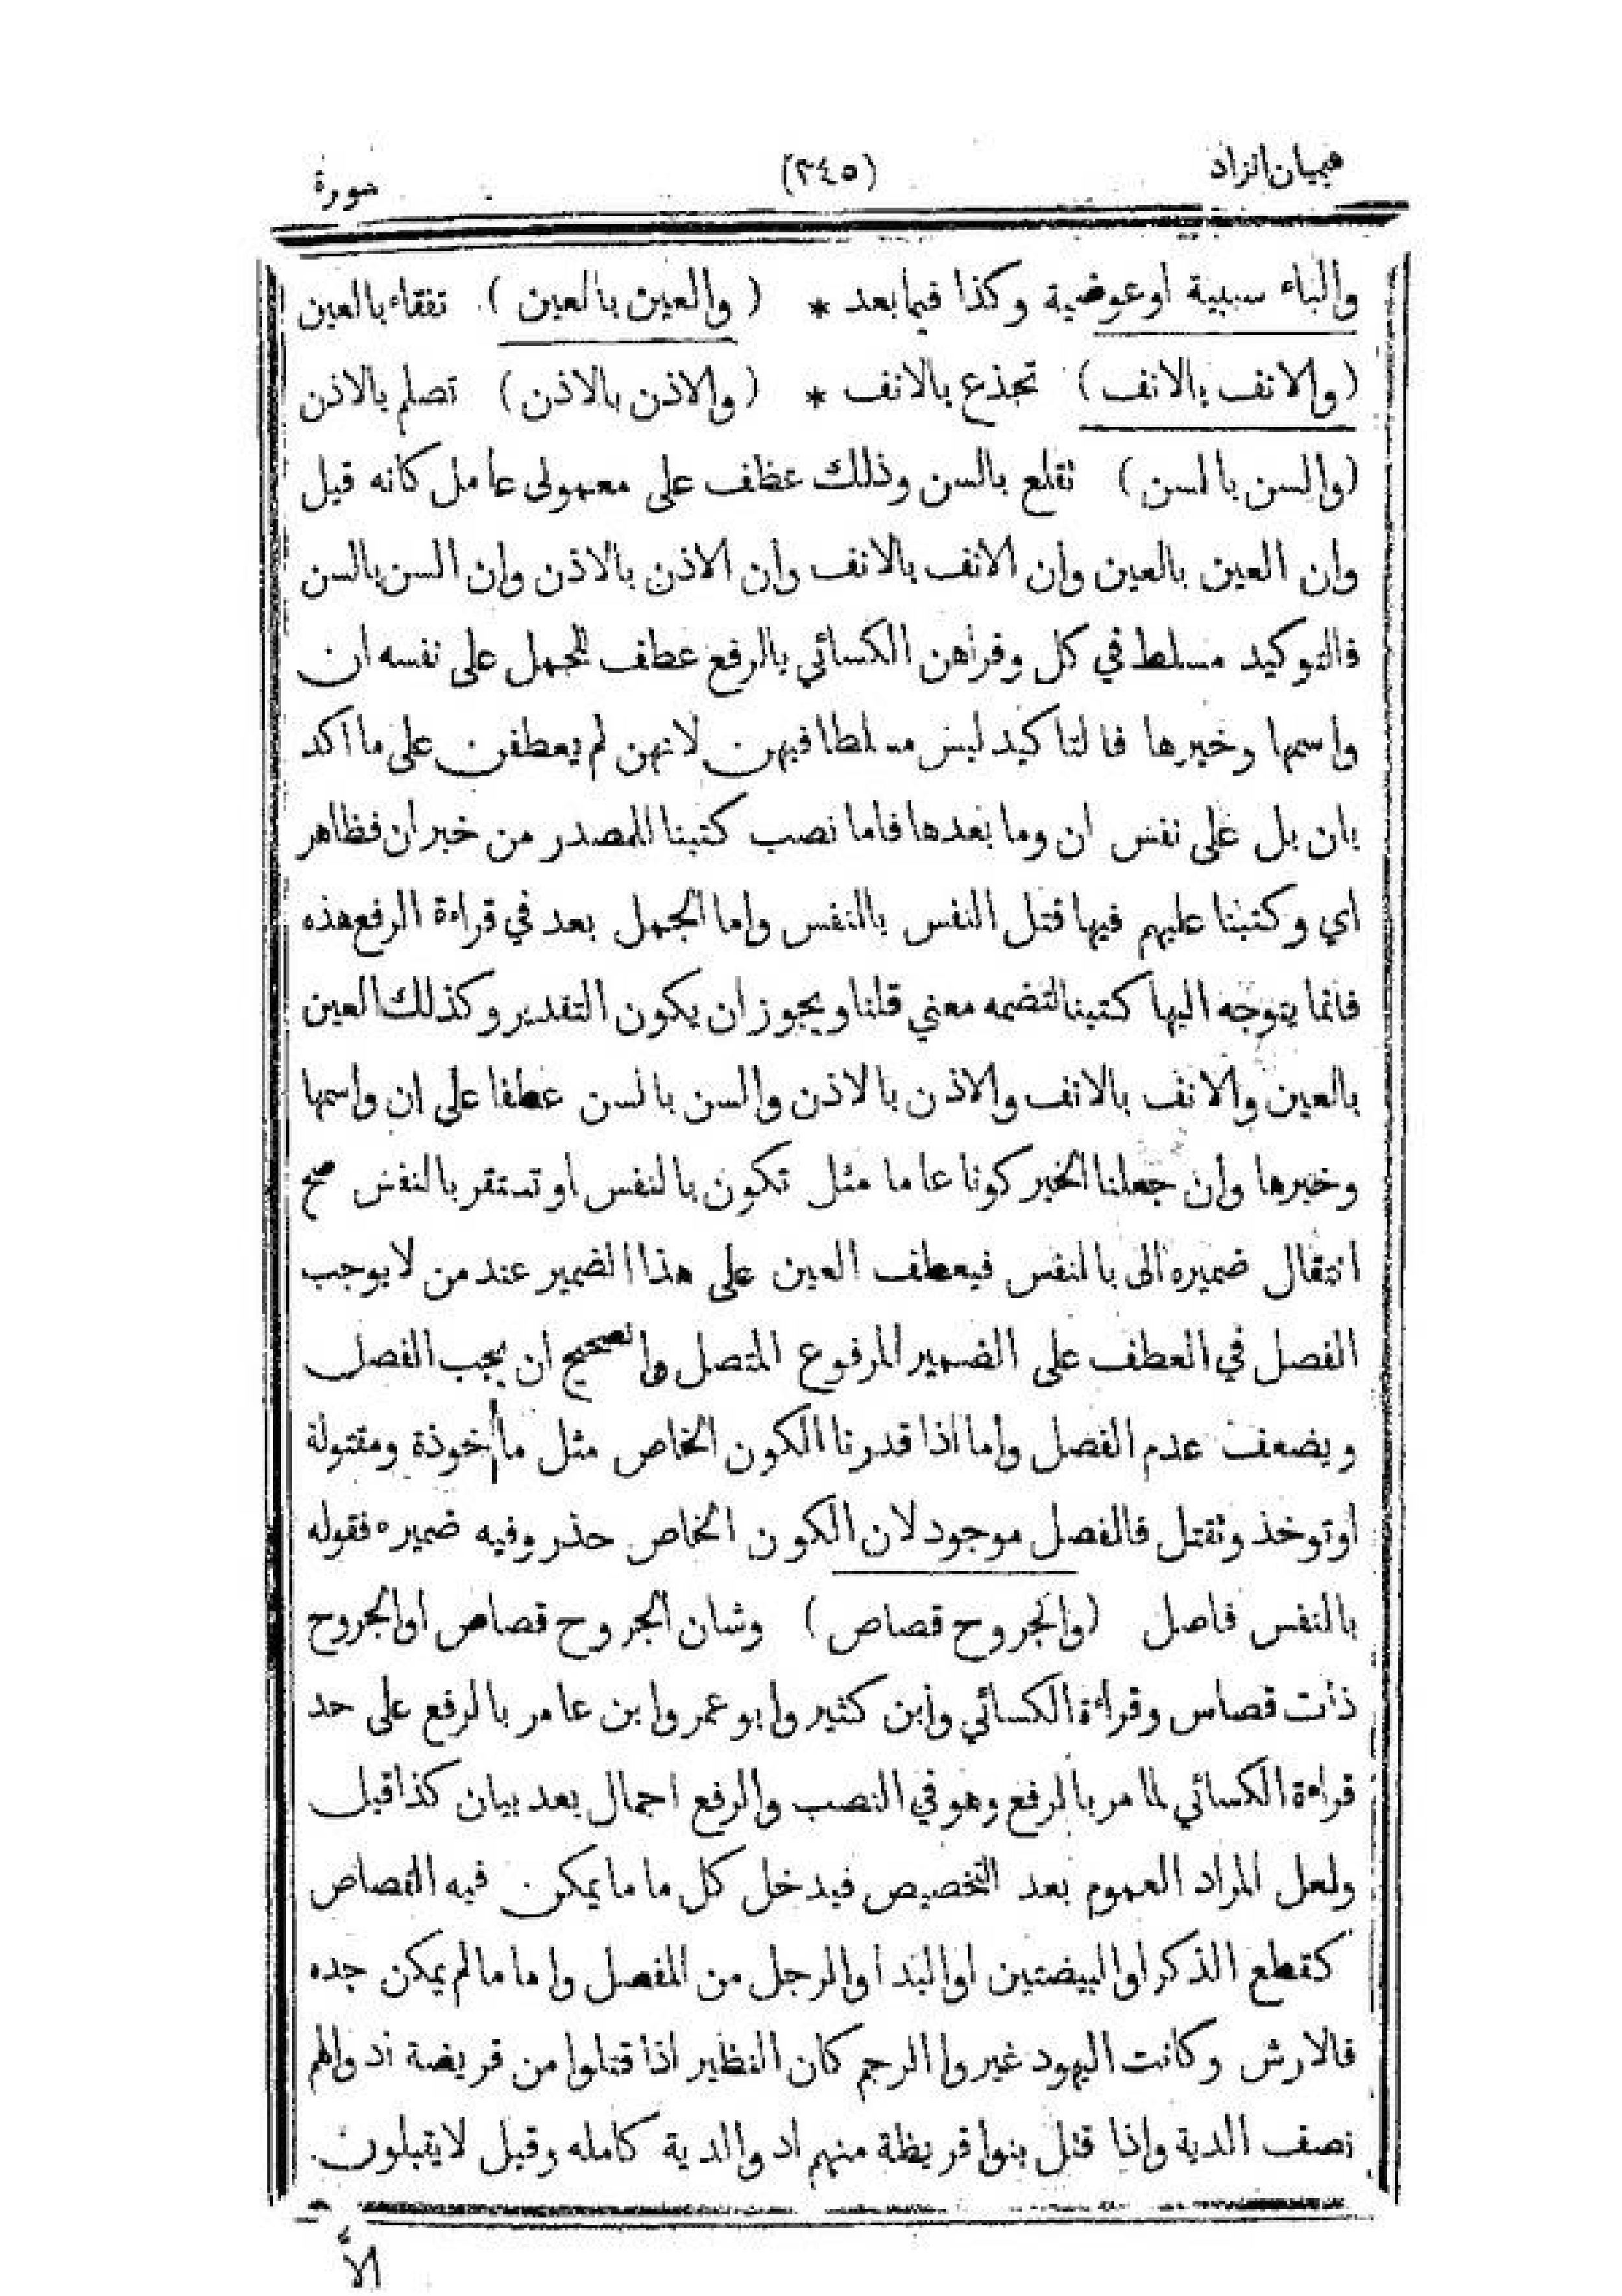 هيميان الزاد (٣٤٥) سورة
والباء سببية اوعوضية وكذا فيما بعد * ( والعين بالعين ) تفقاء بالعين
(والانف بالانف) تجذع بالانف * (والاذن بالاذن) تصلم بالاذن
(والسن بالسن) تقلع بالسن وذلك عظف على معمولى عامل كانه قيل
وان العين بالعين وان الانف بالانف وان الاذن بالاذن وان السن بالسن
فالتوكيد مسلط في كل وقرأهن الكسائي بالرفع عطف للجمل على نفسه ان
واسمها وخبرها فالتاكيد ليس مسلطا فيهن لانهن لم يعطفن على ما اكد
بان بل على نفس ان وما بعدها فاما نصب كتبنا للمصدر من خبر ان فظاهر
اي وكتبنا عليهم فيها قتل النفس بالنفس واما الجمل بعد في قراءة الرفع هذه
فانما يتوجه اليها كتبنا لتضمه معني قلنا ويجوز ان يكون التقدير وكذلك العين
بالعين والانف بالانف والاذن بالاذن والسن بالسن عطفا على ان واسمها
وخبرها وان جعلنا الخبر كونا عاما مثل تكون بالنفس او تستقر بالنفس صح
انتقال ضميره الى بالنفس فيعطف العين على هذا الضمير عند من لا يوجب
الفصل في العطف على الضمير المرفوع المتصل والصحيح ان يجب الفصل
ويضعف عدم الفصل وأما اذا قدرنا الكون الخاص مثل مأخوذة ومقتولة
اوتوخذ وتقتل فالفصل موجود لان الكون الخاص حذر وفيه ضميره فقوله
بالنفس فاصل (والجروح قصاص) وشان الجروح قصاص اوالجروح
ذات قصاس وقراءة الكسائي وابن كثير وابو عمر وابن عامر بالرفع على حد
قراءة الكسائي لما مر بالرفع وهو في النصب والرفع اجمال بعد بيان كذا قيل
ولعل المراد العموم بعد التخصيص فيدخل كل ما ما يمكن فيه القصاص
كقطع الذكر اوالبيضتين اواليد اوالرجل من المفصل واما مالم يمكن حده
فالارش وكانت اليهود غيروا الرجم كان النظير اذا قتلوا من قريضة أدوالهم
نصف الدية واذا قتل بنوا قريظة منهم ادوالدية كامله وقيل لايقبلون
الأ